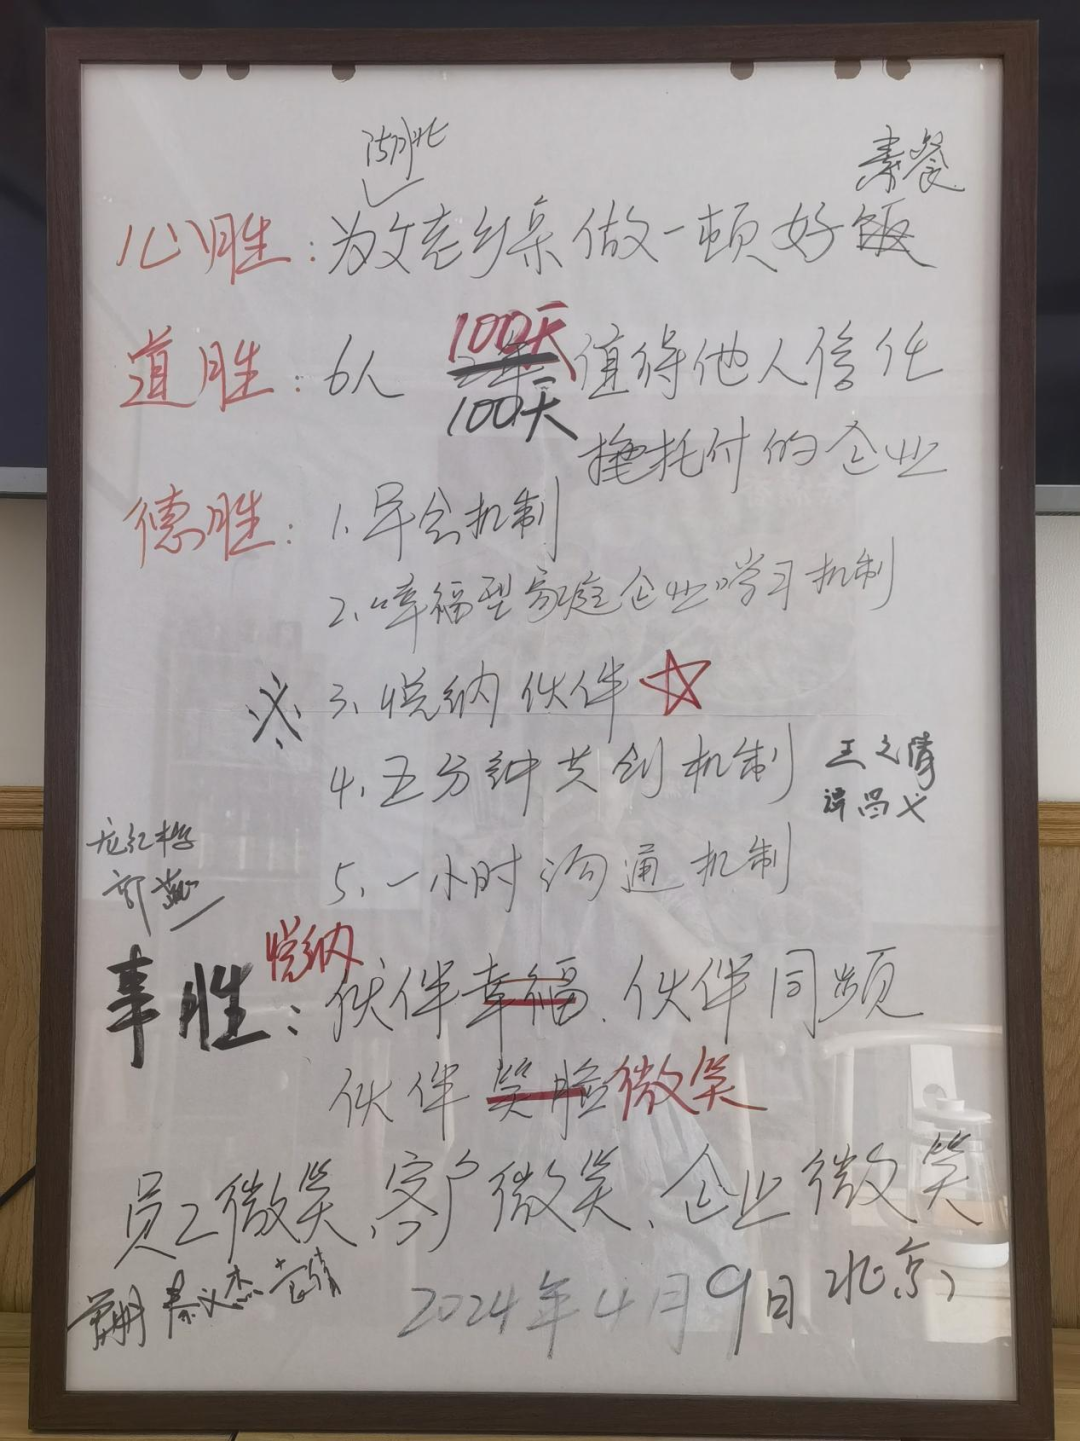 湖北
素餐
心胜：为父老乡亲做一顿好饭
100天
道胜：6人 二年 值得他人信任
100天
托付的企业
德胜：1、早会机制
2、幸福型家庭企业学习机制
3、悦纳伙伴
4、五分钟共创机制
王文倩
谭昌义
5、一小时沟通机制
悦纳
事胜：伙伴幸福、伙伴同频
伙伴笑脸微笑
员工微笑、客户微笑、企业微笑
秦义杰
2024年4月9日北京